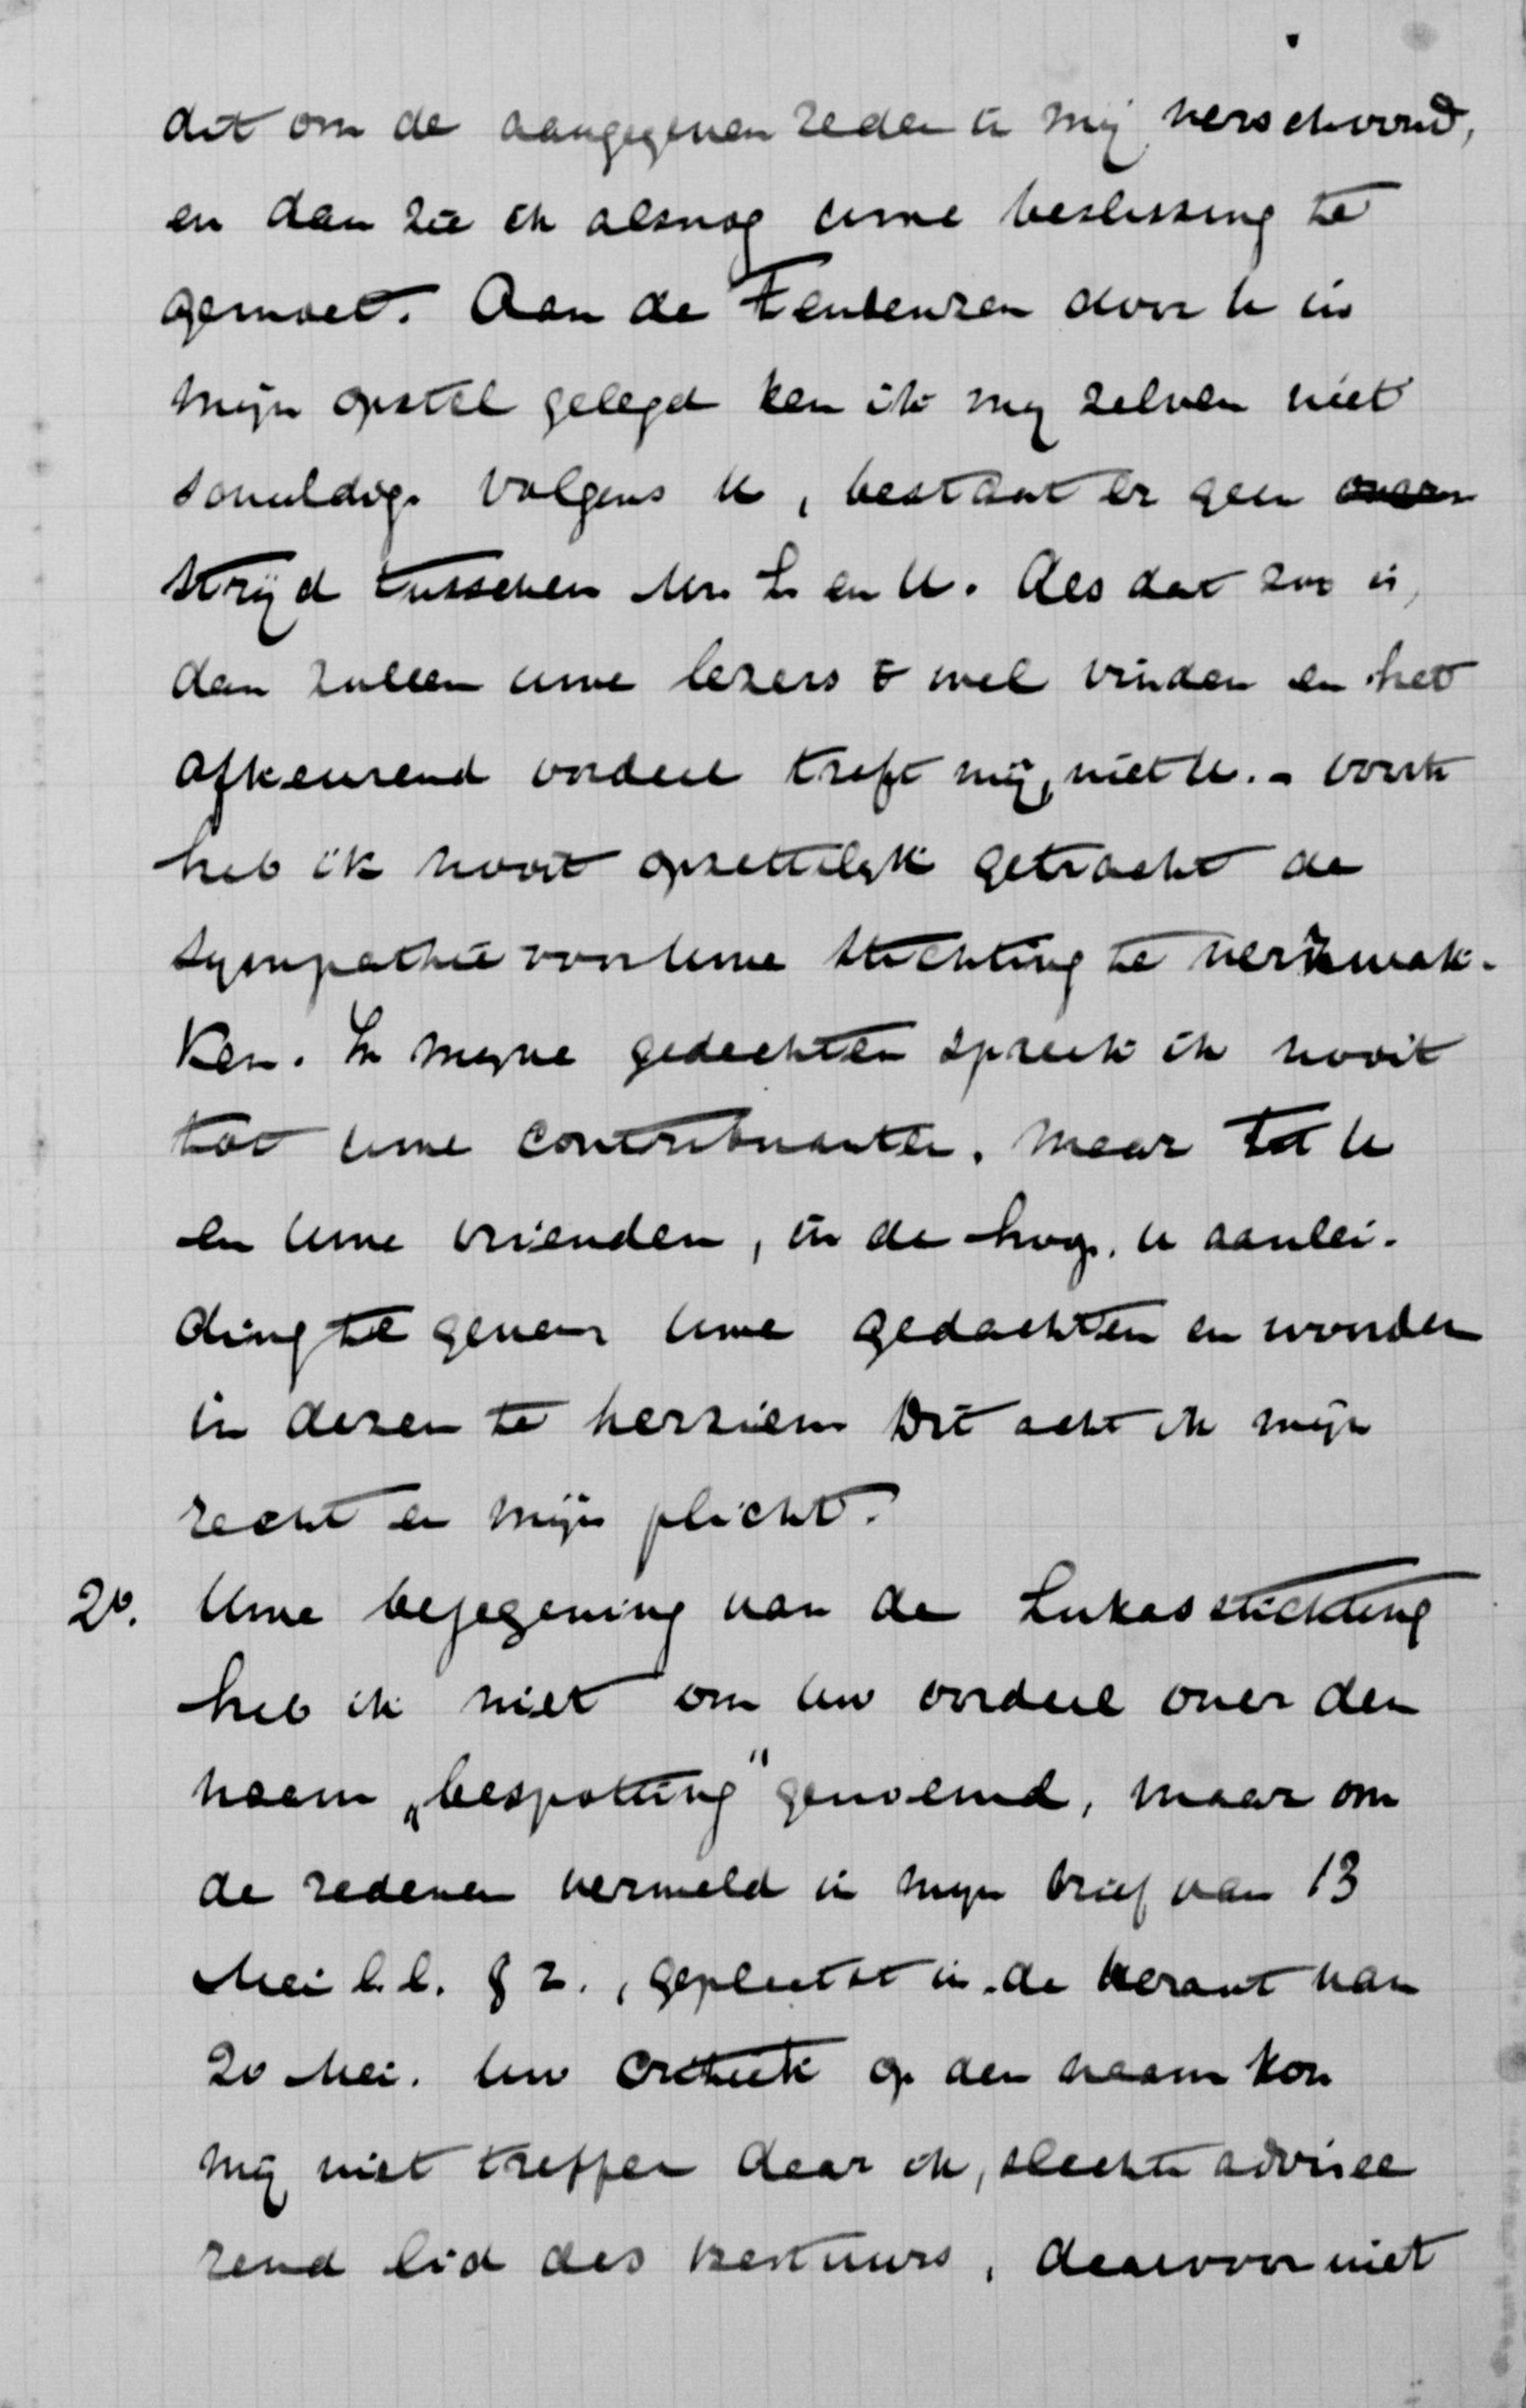 dit om de aangegeven reden te mij verschoond,
en dan zie ik alsnog uwe beslissing te
gemoet. Aan de tendenzen door U in
mijn opstel gelegd ken ik mij zelven niet
schuldig. Volgens U, bestaat er geen
strijd tusschen Mr. L. en U. Als dat zoo is,
dan zullen uwe lezers 't wel vinden en het
afkeurend oordeel treft mij, niet U. - Voorts
heb ik nooit opzettelijk getracht de
sympathie voor Uwe stichting te verzwak-
ken. In mijne gedachten spreek ik nooit
tot uwe contribuanten, maar tot U
en Uwe vrienden, in de hoop, U aanlei-
ding te geven Uwe gedachten en woorden
in dezen te herzien. Dit acht ik mijn
recht en mijn plicht.
2o. Uwe bejegening van de Lukasstichting
heb ik niet om Uw oordeel over den
naam „bespotting" genoemd, maar om
de redenen vermeld in mijn brief van 13
Mei l.l. § 2., geplaatst in de Heraut van
20 Mei. Uw critiek op den naam kon
mij niet treffen daar ik, slechts advisee
rend lid des bestuurs, daarvoor niet